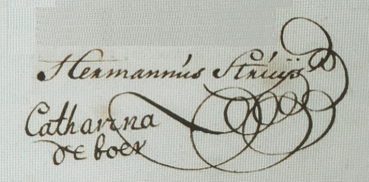 Hermannus Struijs
Catharina
de boer